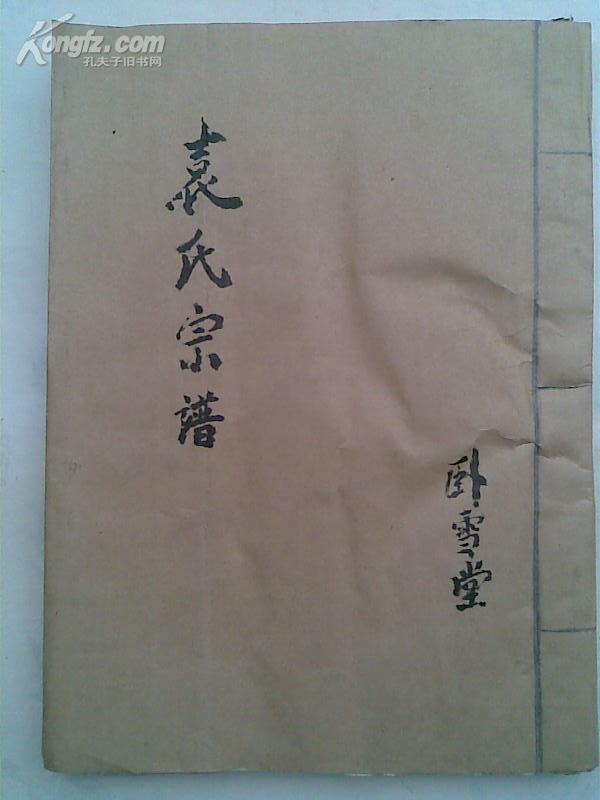 Kongfz.com
孔夫子旧书网
袁氏宗谱
卧雪堂